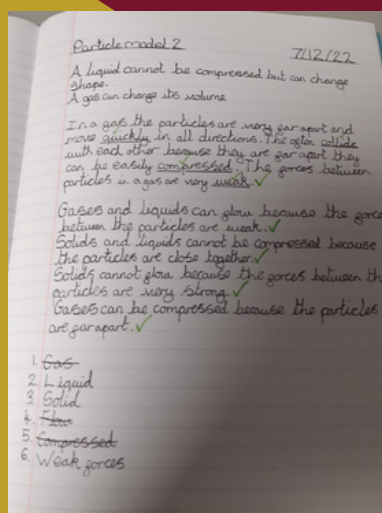 Particle model 2
7/12/22
A liquid cannot be compressed but can change
shape.
A gas can change its volume
In a gas the particles are very far apart and
move quickly in all directions. The often collide
with each other because they are far apart they
can be easily compressed. The forces between
particles in a gas are very weak.
Gases and liquids can flow because the force
between the particles are weak.
Solids and liquids cannot be compressed because
the particles are close together.
Solids cannot flow because the forces between th
particles are very strong.
Gases can be compressed because the particles
are far apart.
1. Gas
2 Liquid
3 Solid
4. Flow
5. Compressed
6. Weak forces